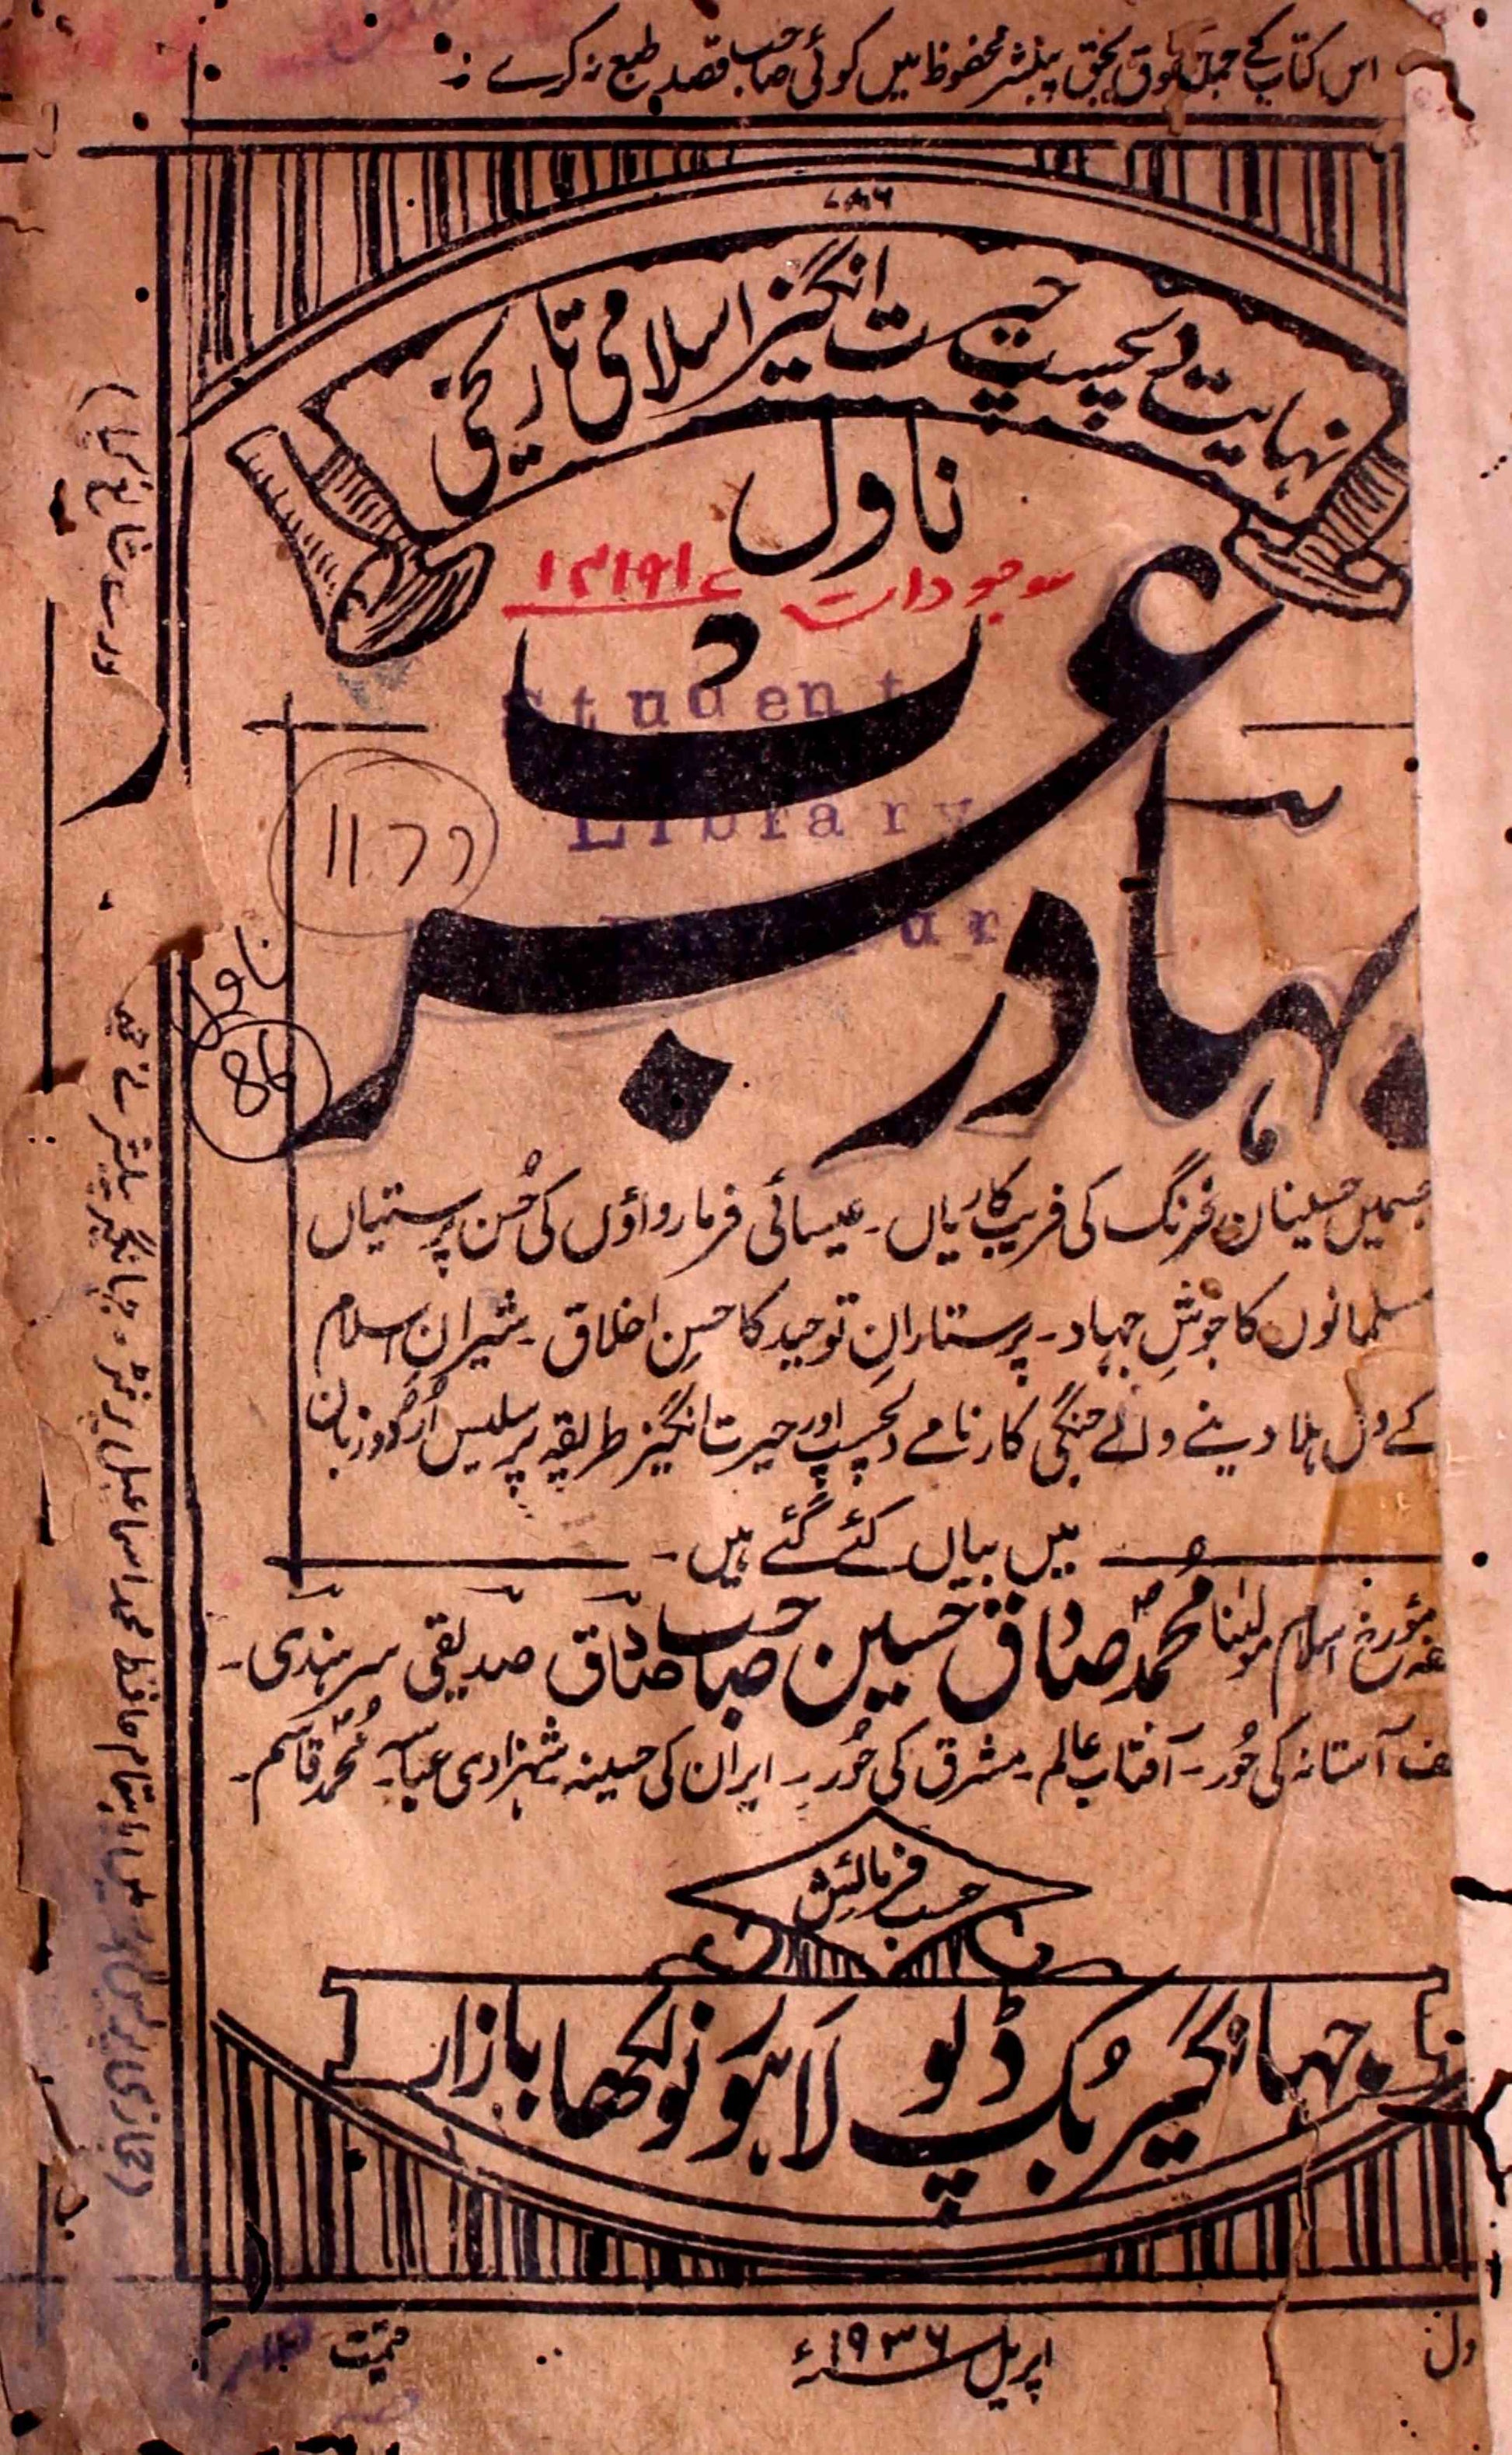 اس کتاب کے جملہ حقوق بحق پبلشر محفوظ ہیں کوئی صاحب قصد طبع نہ کرے
۷۸۶
نہایت دلچسپ حیرت انگیز اسلامی تاریخی
ناول
موجودات ۱۲۱۹۱
بہادر عرب
Student
Library
1177
ناول
86
جسمیں حسینان فرنگ کی فریب کاریاں۔ عیسائی فرمارواؤں کی حُسن پرستیاں
مسلمانوں کا جوشِ جہاد۔ پرستارانِ توحید کا حسنِ اخلاق۔ شیرانِ اسلام
کے دل ہلا دینے والے جنگی کارنامے دلچسپ اور حیرت انگیز طریقہ پر سلیس اُردو زبان
میں بیاں کئے گئے ہیں۔
مؤرخ اسلام مولینا محمد صادق حسین صاحب صادق صدیقی سرہندی۔
آستانہ کی حُور۔ آفتاب عالم۔ مشرق کی حُور۔ ایران کی حسینہ۔ شہزادی عباسہ۔ محمد قاسم۔
حسب فرمائش
جہانگیر بُک ڈپو لاہور نولکھا بازار
اپریل ۱۹۳۶ء
قیمت